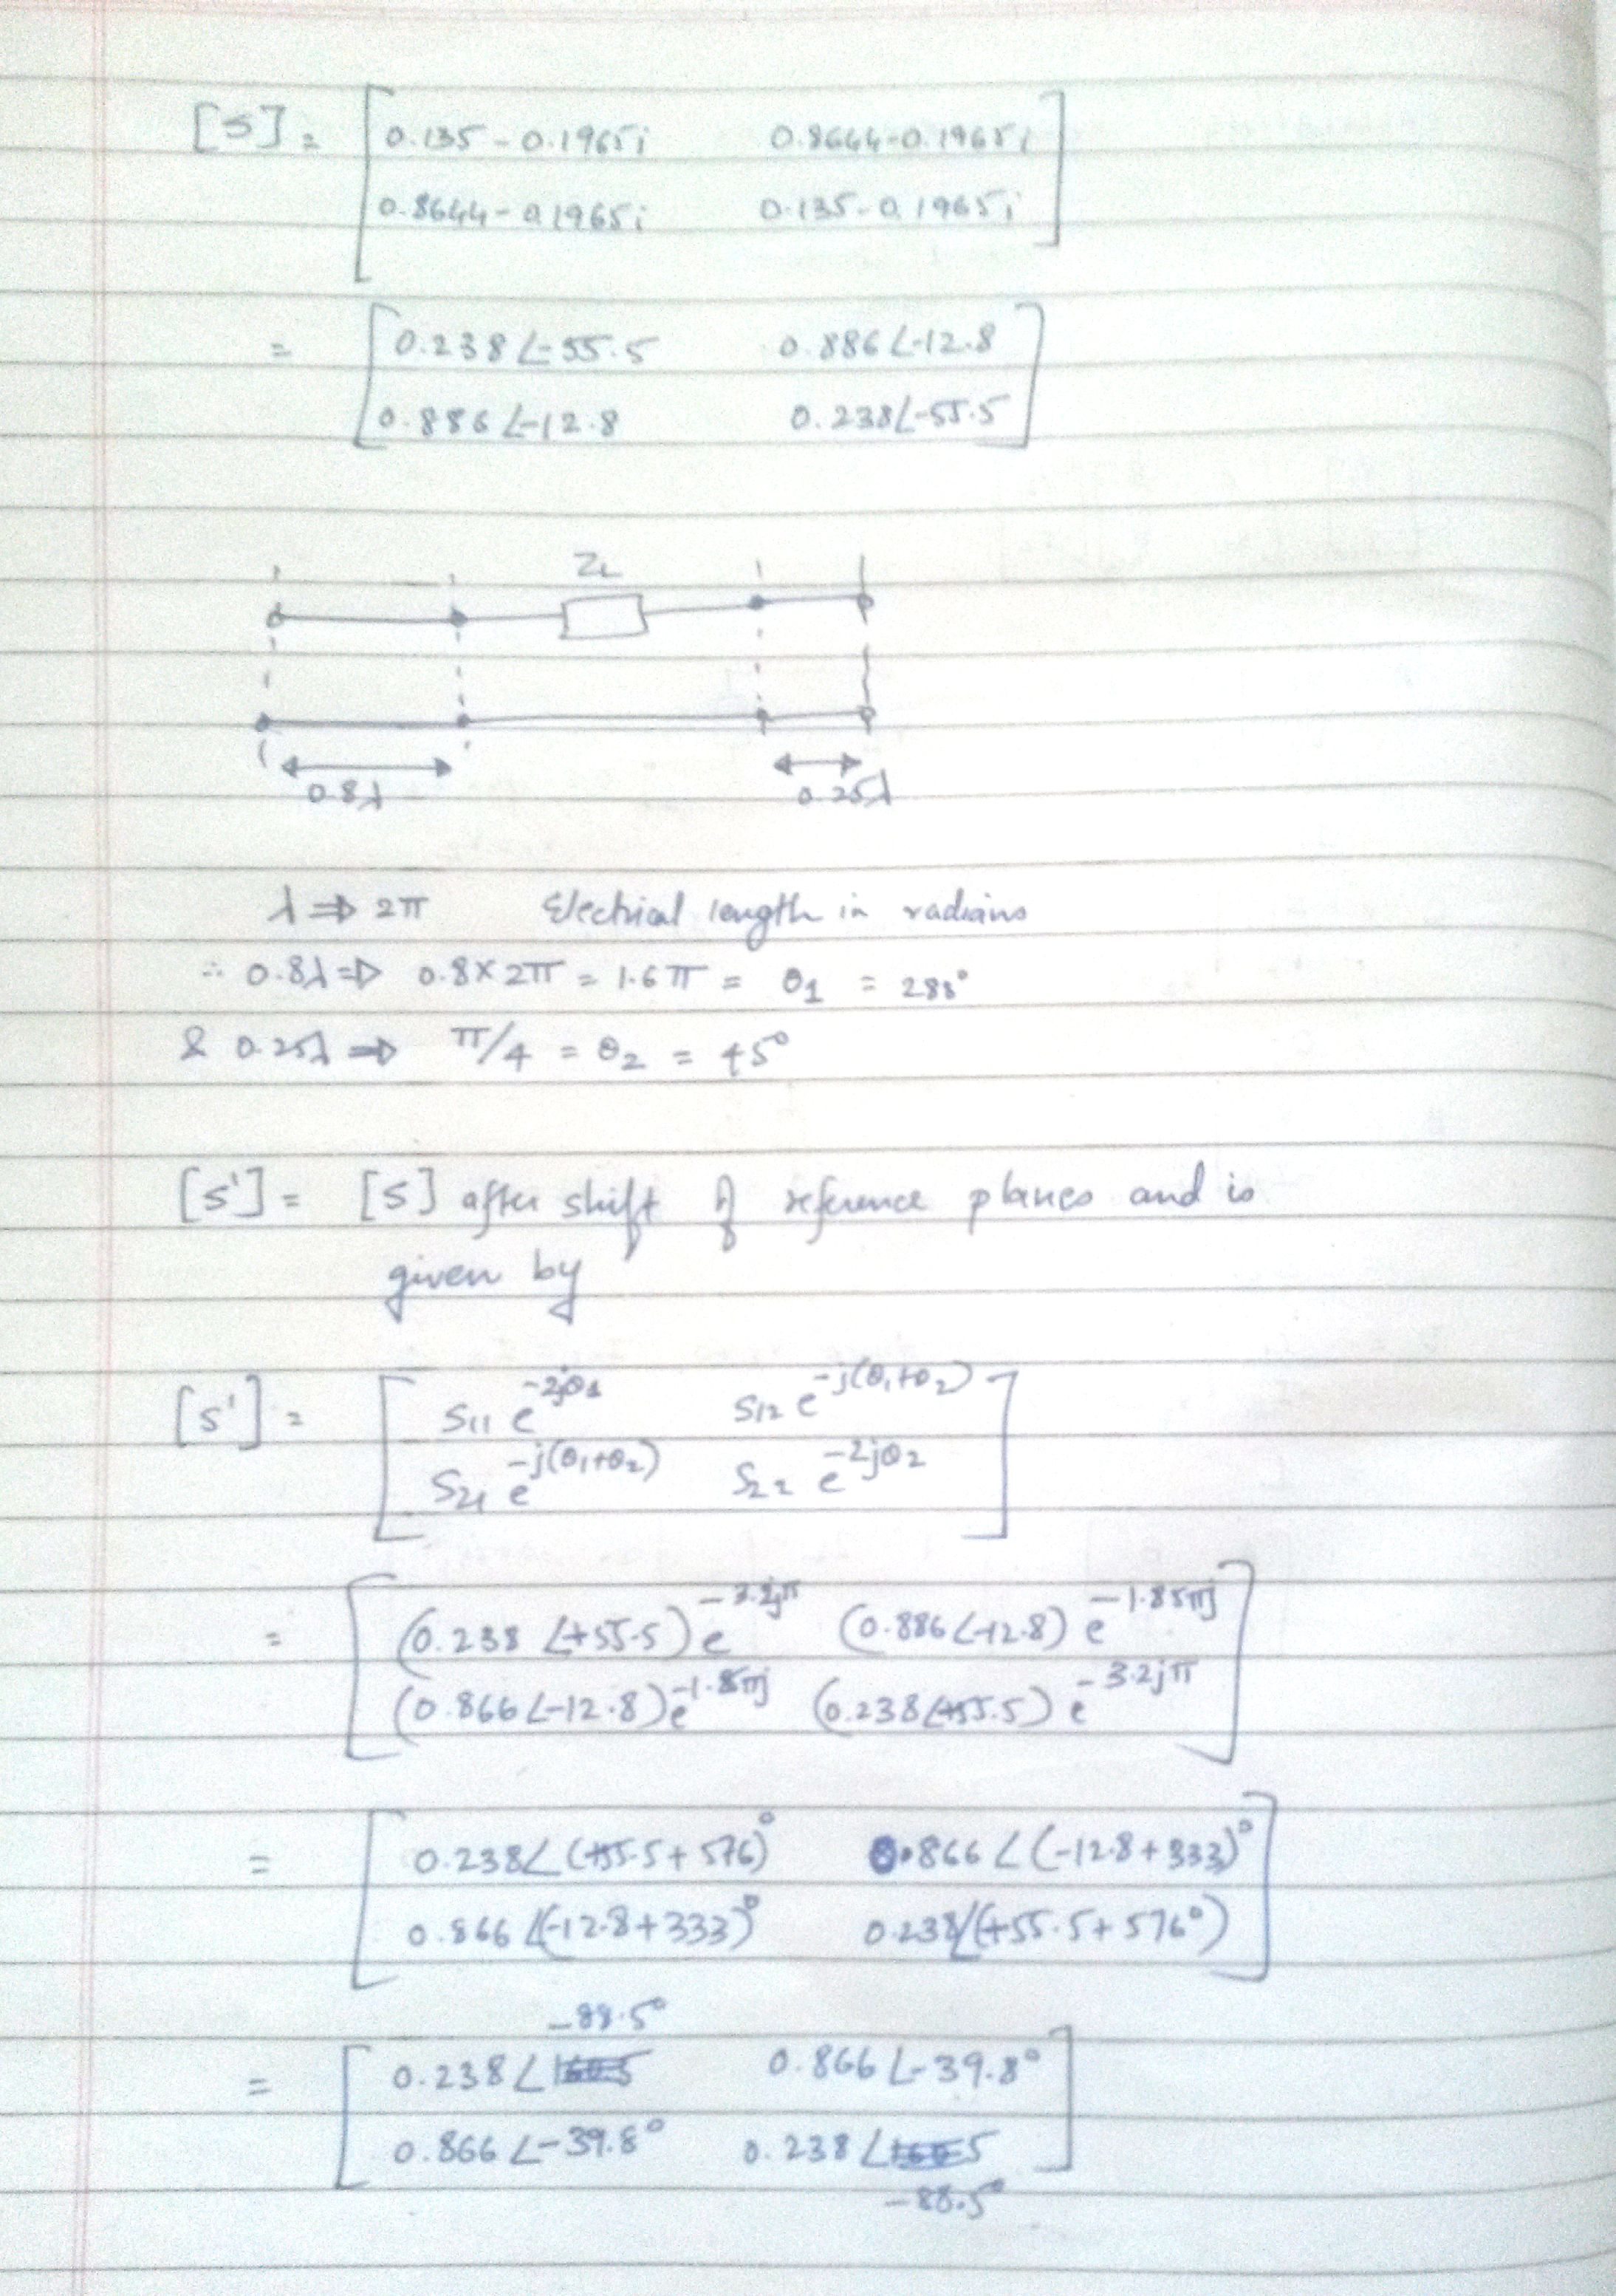 [S] = [ 0.135 - 0.1965i 0.8644-0.1965i
0.8644 - 0.1965i 0.135-0.1965i ]
= [ 0.238 ∠-55.5 0.886 ∠-12.8
0.886 ∠-12.8 0.238∠-55.5 ]
ZL
0.8λ 0.25λ
λ ⇒ 2π Electrical length in radians
∴ 0.8λ ⇒ 0.8 × 2π = 1.6π = θ1 = 288°
& 0.25λ ⇒ π/4 = θ2 = 45°
[S'] = [S] after shift of reference planes and is
given by
[S'] = [ S11 e^-2jθ1 S12 e^-j(θ1+θ2)
S21 e^-j(θ1+θ2) S22 e^-2jθ2 ]
= [ (0.238 ∠+55.5) e^-3.2jπ (0.886∠-12.8) e^-1.85πj
(0.866 ∠-12.8) e^-1.85πj (0.238∠+55.5) e^-3.2jπ ]
= [ 0.238∠(+55.5 + 576)° 0.866 ∠(-12.8 + 333)°
0.866 ∠(-12.8+333)° 0.238∠(+55.5 + 576°) ]
-88.5°
= [ 0.238 ∠ 0.866 ∠-39.8°
0.866 ∠-39.8° 0.238 ∠ ]
-88.5°